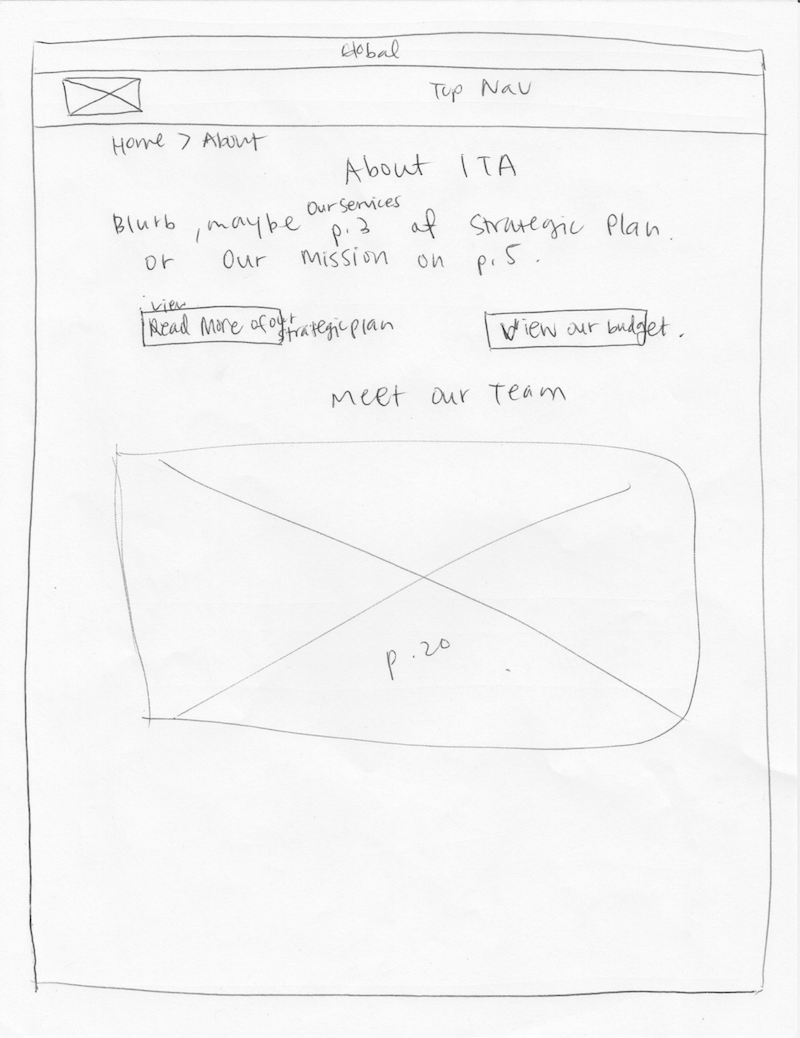 Global
Top Nav
Home > About
About ITA
Our Services
Blurb, maybe p.3 of Strategic Plan.
or Our Mission on p.5.
view
Read More of our strategic plan
View our budget.
Meet Our Team
p.20